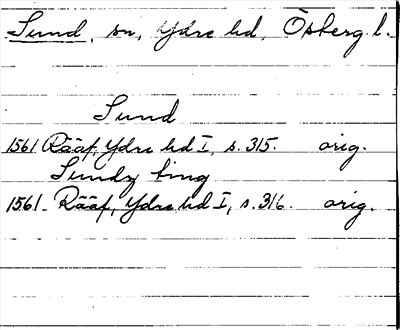 Sund, sn, Ydre hd, Ösberg l.
Sund
1561 Rääf, Ydre hd I, s. 315. orig.
Sundz ting
1561- Rääf, Ydre hd I, s. 316. orig.